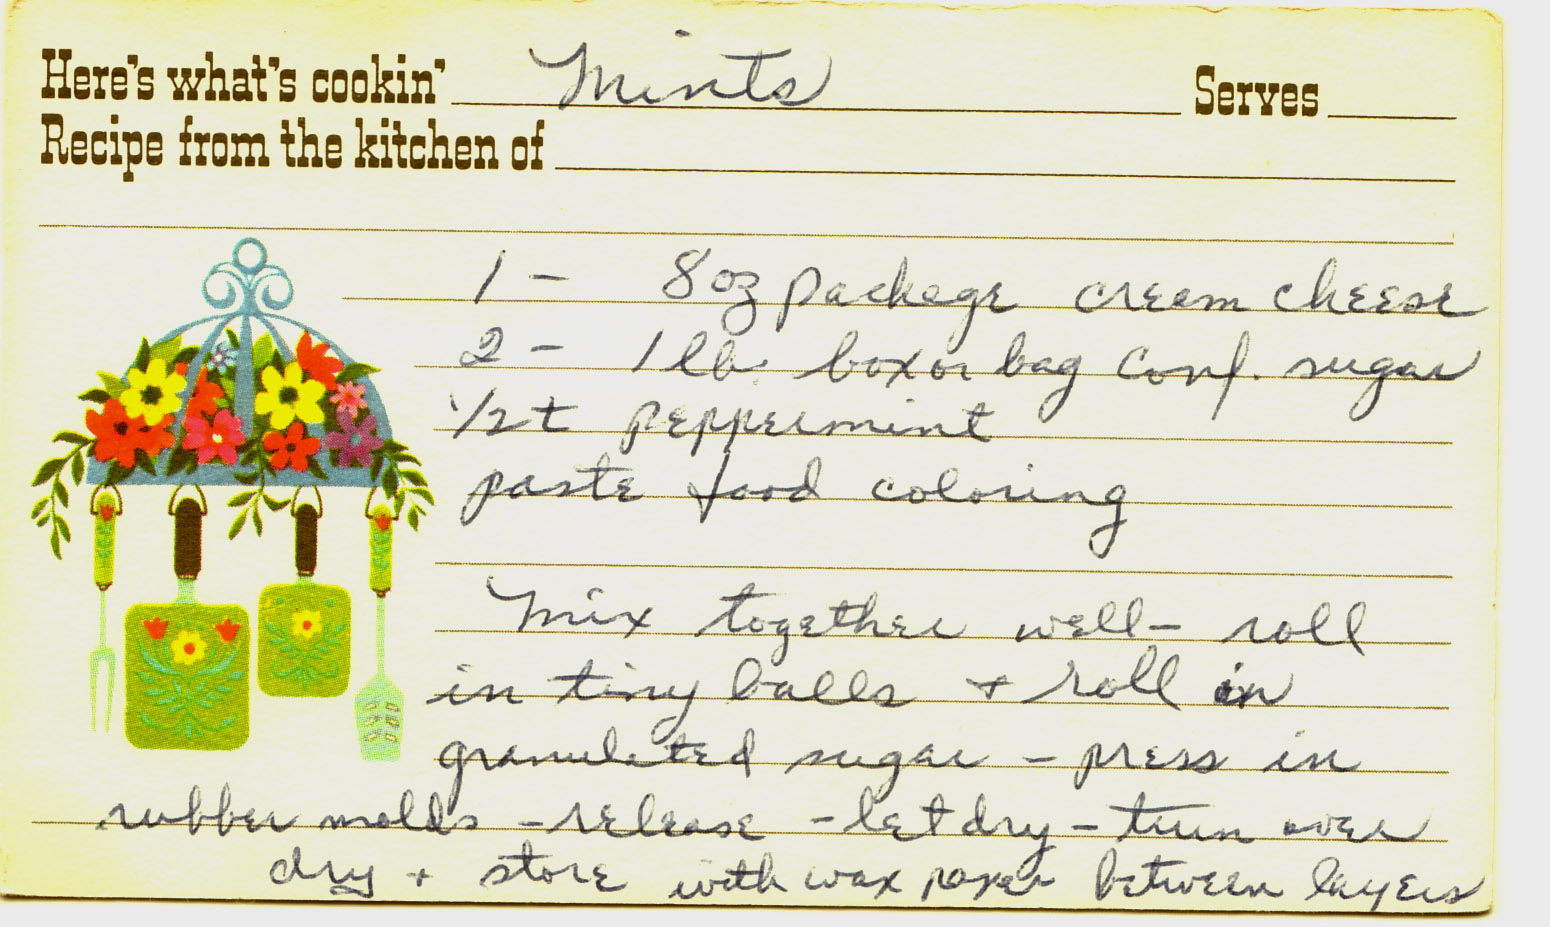 Here's what's cookin' Mints Serves
Recipe from the kitchen of
1 - 8 oz package cream cheese
2 - 1 lb. box or bag Conf. sugar
1/2 t peppermint
paste food coloring
Mix together well - roll
in tiny balls + roll in
granulated sugar - press in
rubber molds - release - let dry - turn over
dry + store with wax paper between layers